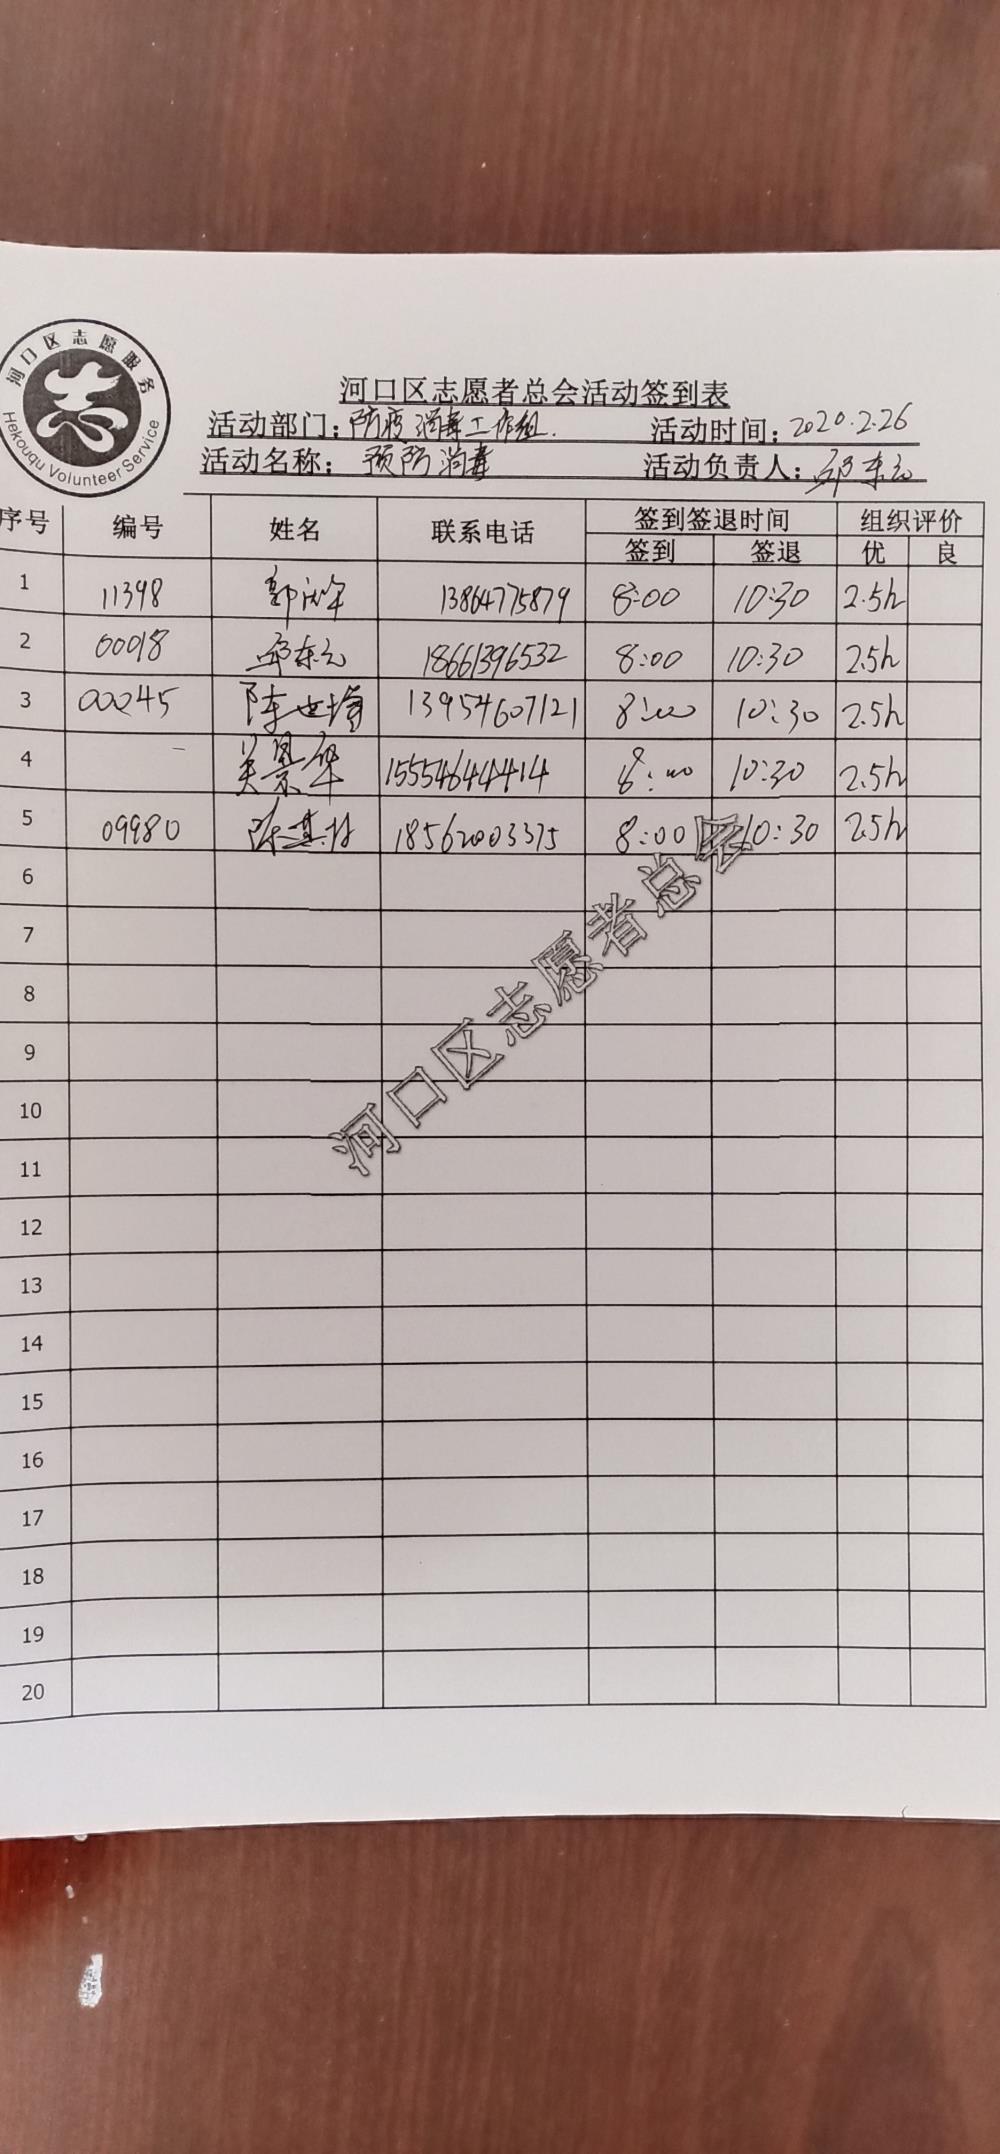 河口区志愿服务
Hekouqu Volunteer Service
河口区志愿者总会活动签到表
活动部门：防疫消毒工作组. 活动时间：2020.2.26
活动名称：预防消毒 活动负责人：邱东云
序号 编号 姓名 联系电话 签到签退时间 组织评价
签到 签退 优 良
1 11398 郭 13864775879 8:00 10:30 2.5h
2 00018 邱东云 18661396532 8:00 10:30 2.5h
3 00045 陈世增 13954607121 8:00 10:30 2.5h
4 吴景华 15554644414 8:00 10:30 2.5h
5 09980 陈其 18562003375 8:00 10:30 2.5h
6
7
8
9
10
11
12
13
14
15
16
17
18
19
20
河口区志愿者总会